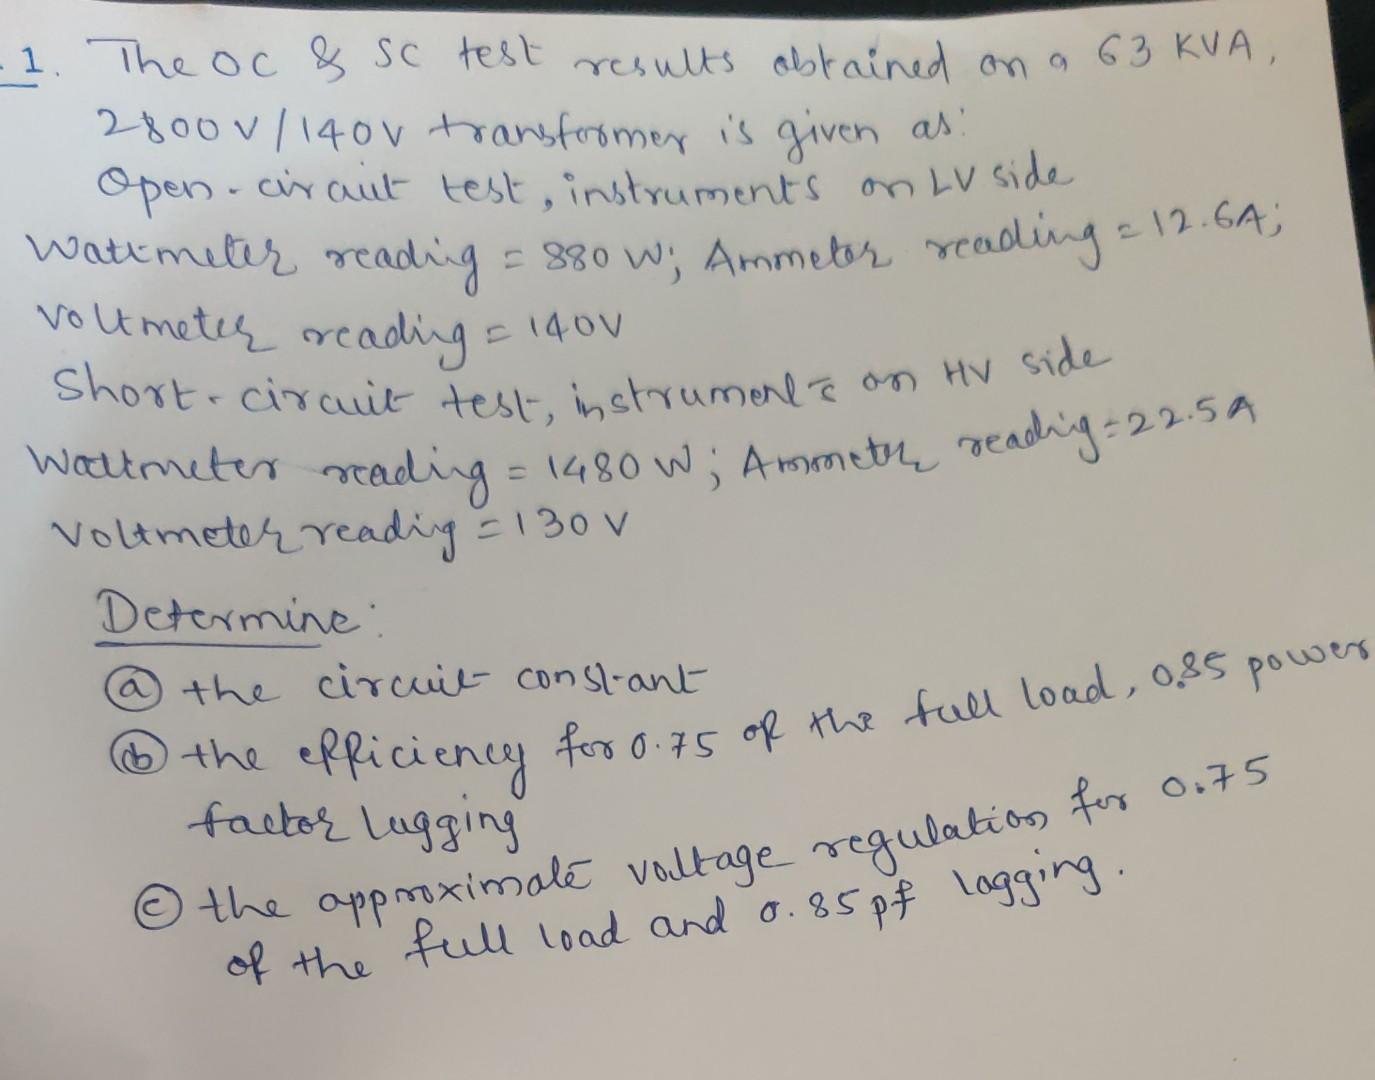 1. The OC & SC test results obtained on a 63 KVA,
2800V/140V transformer is given as:
Open-circuit test, instruments on LV side
Wattmeter readig = 880 W; Ammeter reading = 12.6A;
Voltmeter reading = 140V
Short-circuit test, instruments on HV side
Wattmeter reading = 1480 W; Ammeter readig = 22.5A
Voltmeter readig = 130 V
Determine:
(a) the circuit constant
(b) the efficiency for 0.75 of the full load, 0.85 power
factor lagging
(c) the approximate voltage regulation for 0.75
of the full load and 0.85 pf lagging.